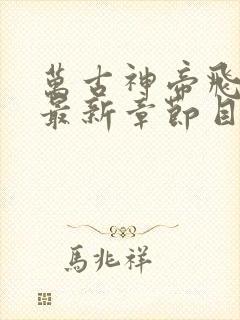 萬古神帝飛
最新章節目
馬兆祥